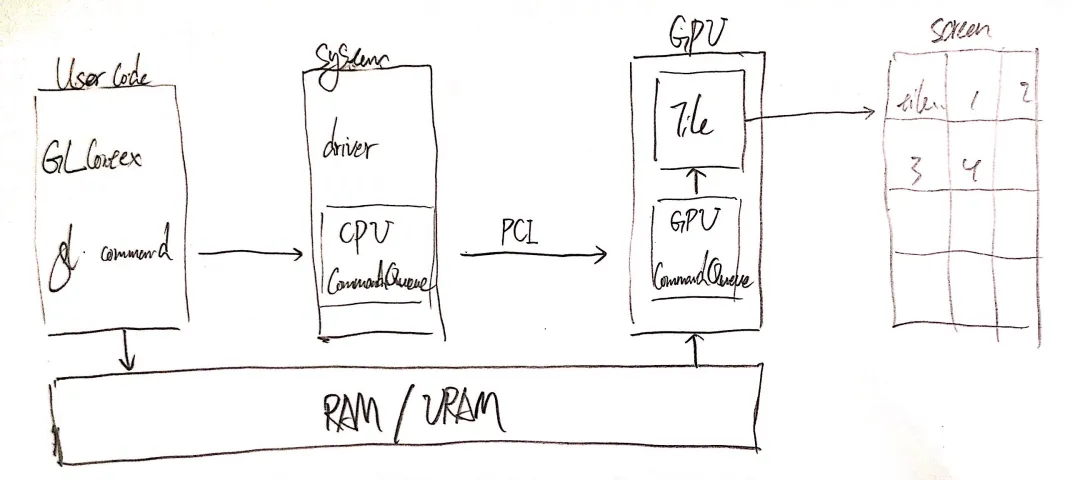 User Code
GL Contex
gl. command
System
driver
CPU
CommandQueue
PCI
GPU
Tile
GPU
CommandQueue
Screen
1 2
3 4
RAM / VRAM